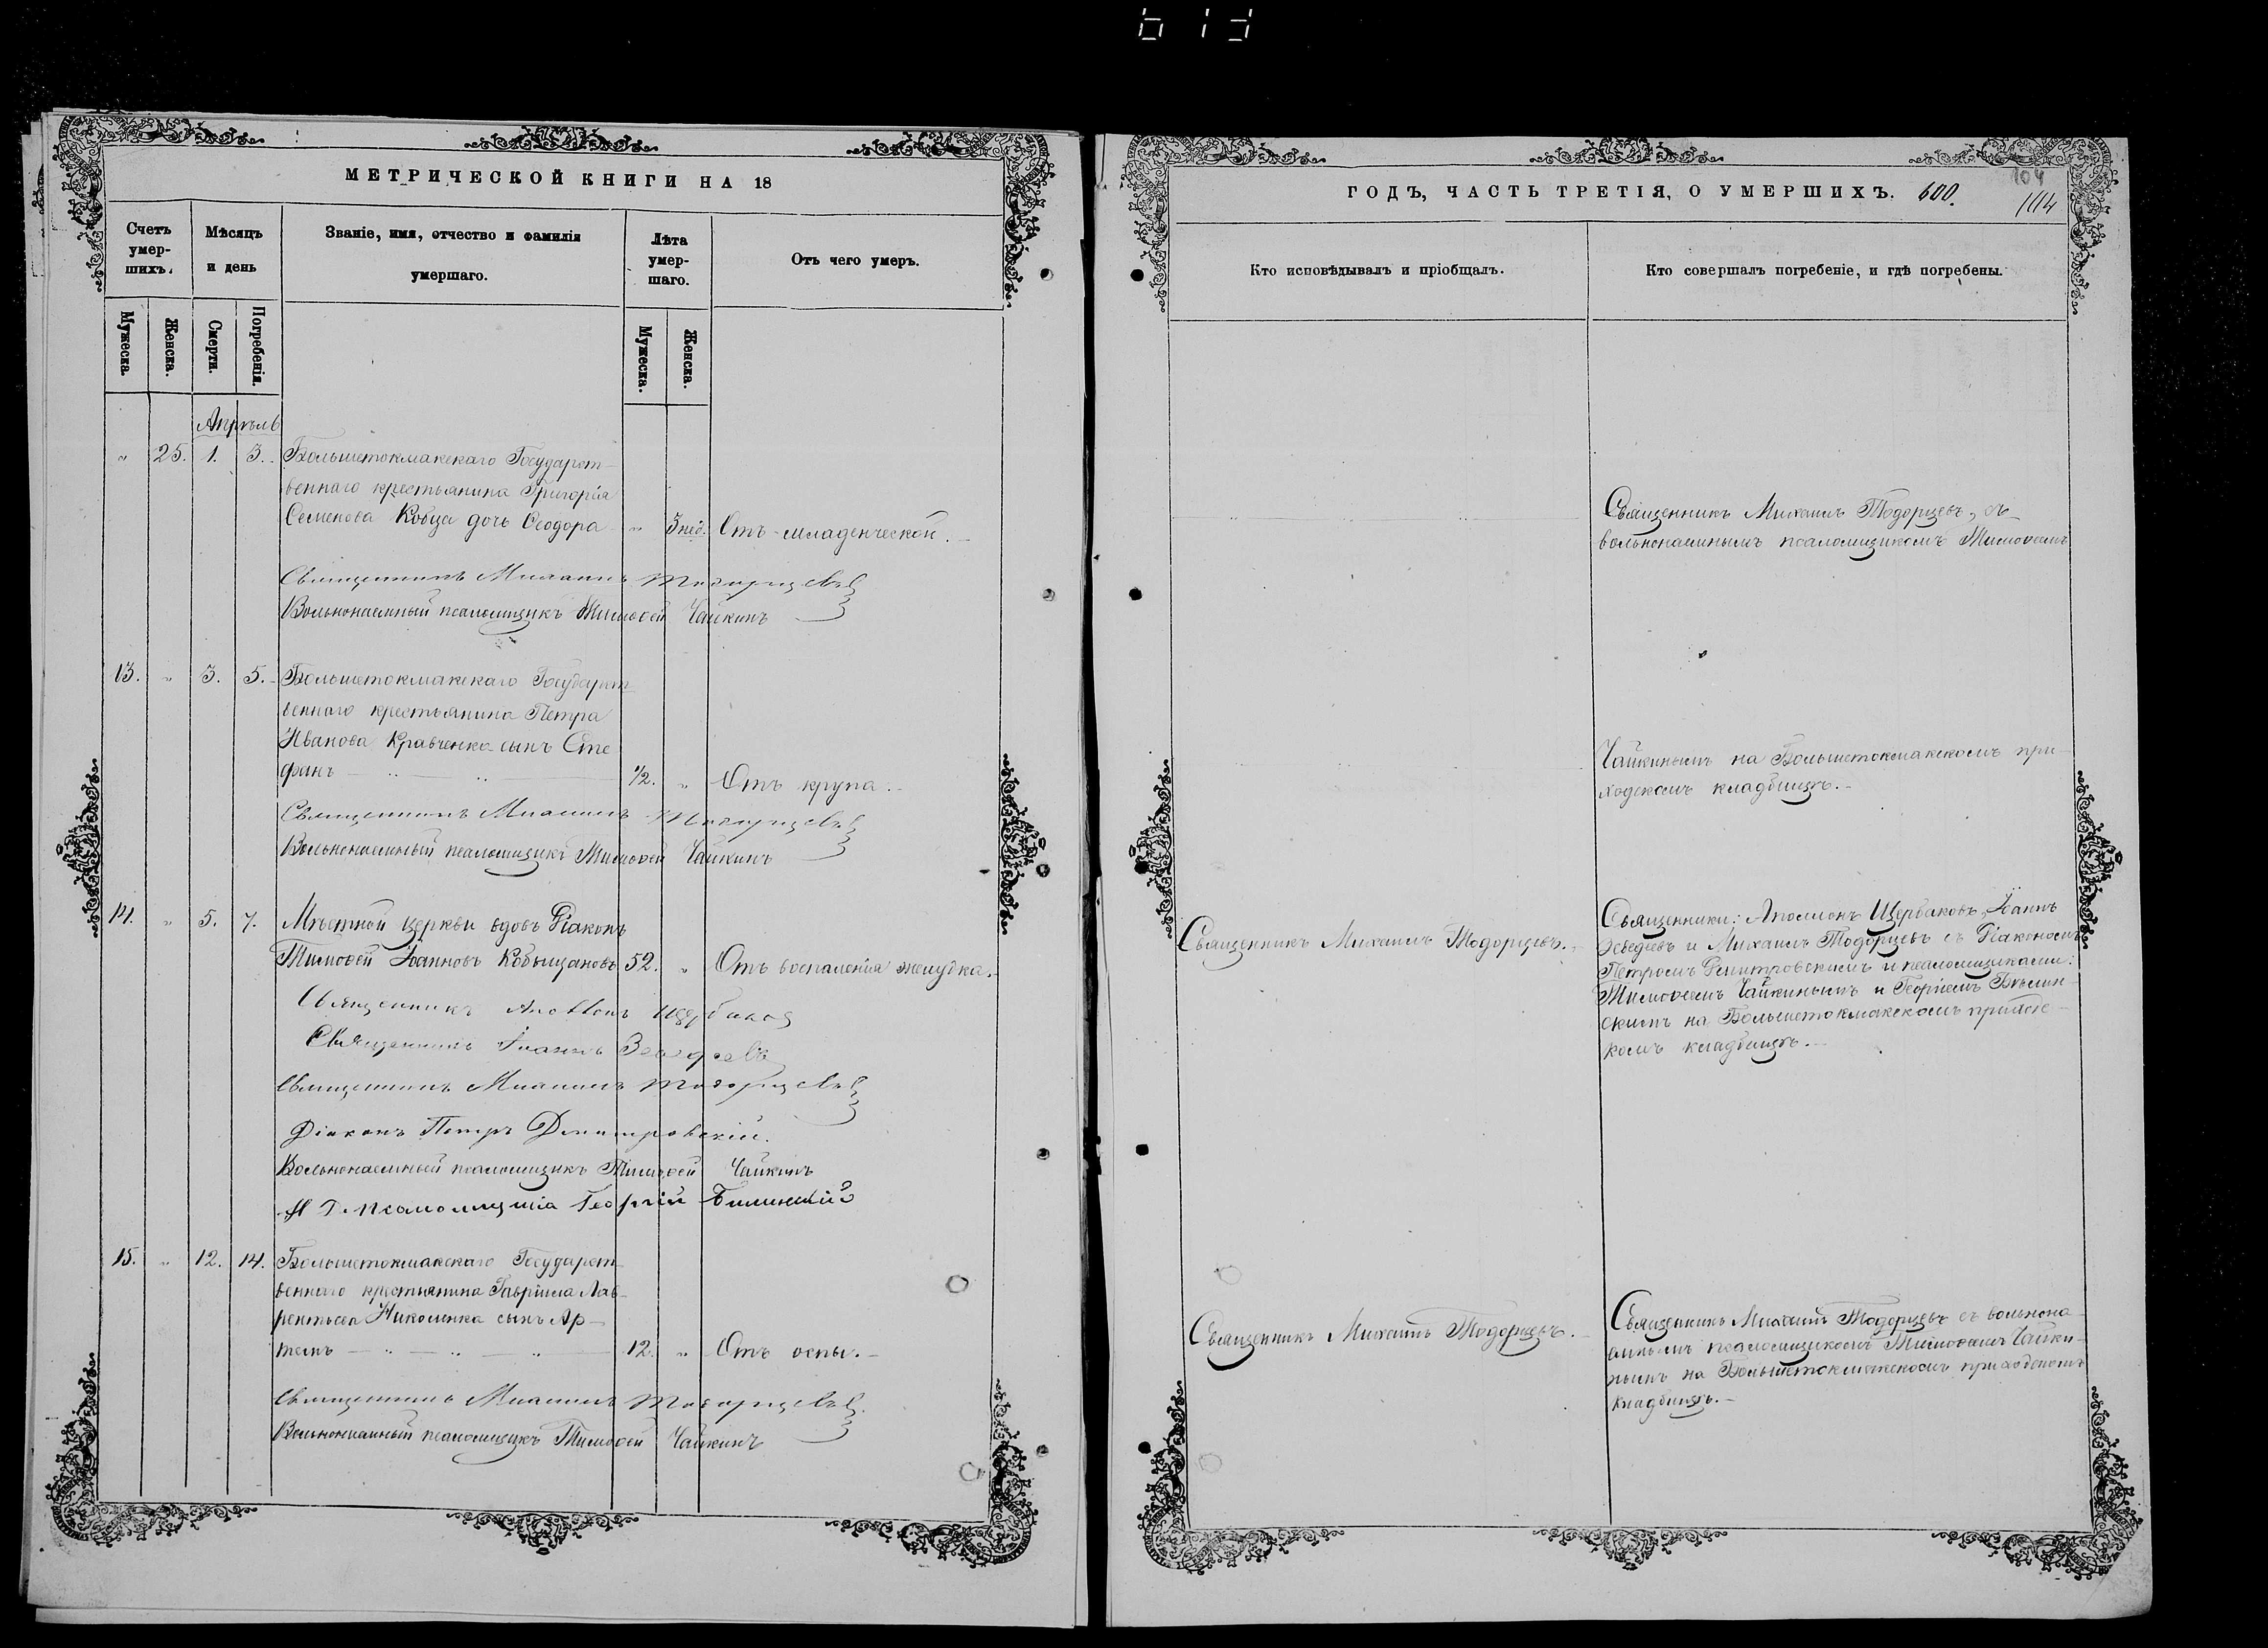 МЕТРИЧЕСКОЙ КНИГИ НА 18
Счетъ умер-шихъ.
Мѣсяцъ и день
Званіе, имя, отчество и фамилія умершаго.
Лѣта умер-шаго.
Отъ чего умеръ.
Мужеска.
Женска.
Смерти.
Погребенія.
Мужеска.
Женска.
Апрѣль
" 25. 1. 3. Большетокмакскаго Государст-
веннаго крестьянина Григорія
Семенова Кобца дочь Ѳеодора " 3 нед. Отъ младенческой.
Священникъ Михаилъ Тодорцевъ
Вольнонаемный псаломщикъ Тимоѳей Чайкинъ
13. " 3. 5. Большетокмакскаго Государст-
веннаго крестьянина Петра
Иванова Кравченка сынъ Сте
фанъ 1/2. " Отъ крупа.
Священникъ Михаилъ Тодорцевъ
Вольнонаемный псаломщикъ Тимоѳей Чайкинъ
14. " 5. 7. Мѣстной церкви вдовъ Діаконъ
Тимоѳей Іоанновъ Кобызановъ 52. " Отъ воспаленія желудка.
Священникъ Аполлонъ Щербаковъ
Священникъ Іоаннъ
Священникъ Михаилъ Тодорцевъ
Діаконъ Петръ Димитровскій.
Вольнонаемный псаломщикъ Тимоѳей Чайкинъ
И. д. псаломщика Георгій Билинскій
15. " 12. 14. Большетокмакскаго Государст
веннаго крестьянина Гавріила Лав-
рентьева Николенка сынъ Ар-
темъ 12. " Отъ оспы.
Священникъ Михаилъ Тодорцевъ
Вольнонаемный псаломщикъ Тимоѳей Чайкинъ
ГОДЪ, ЧАСТЬ ТРЕТІЯ, О УМЕРШИХЪ. 600.
104
104
Кто исповѣдывалъ и пріобщалъ.
Кто совершалъ погребеніе, и гдѣ погребены.
Священникъ Михаилъ Тодорцевъ, съ
вольнонаемнымъ псаломщикомъ Тимоѳеемъ
Чайкинымъ на Большетокмакскомъ при-
ходскомъ кладбищѣ.
Священникъ Михаилъ Тодорцевъ.
Священники: Аполлонъ Щербаковъ, Іоаннъ
и Михаилъ Тодорцевъ съ Діакономъ
Петромъ Димитровскимъ и псаломщиками:
Тимоѳеемъ Чайкинымъ и Георгіемъ Бѣлин-
скимъ на Большетокмакскомъ приходс-
комъ кладбищѣ.
Священникъ Михаилъ Тодорцевъ.
Священникъ Михаилъ Тодорцевъ съ вольнона
емнымъ псаломщикомъ Тимоѳеемъ Чайки-
нымъ на Большетокмакскомъ приходскомъ
кладбищѣ.